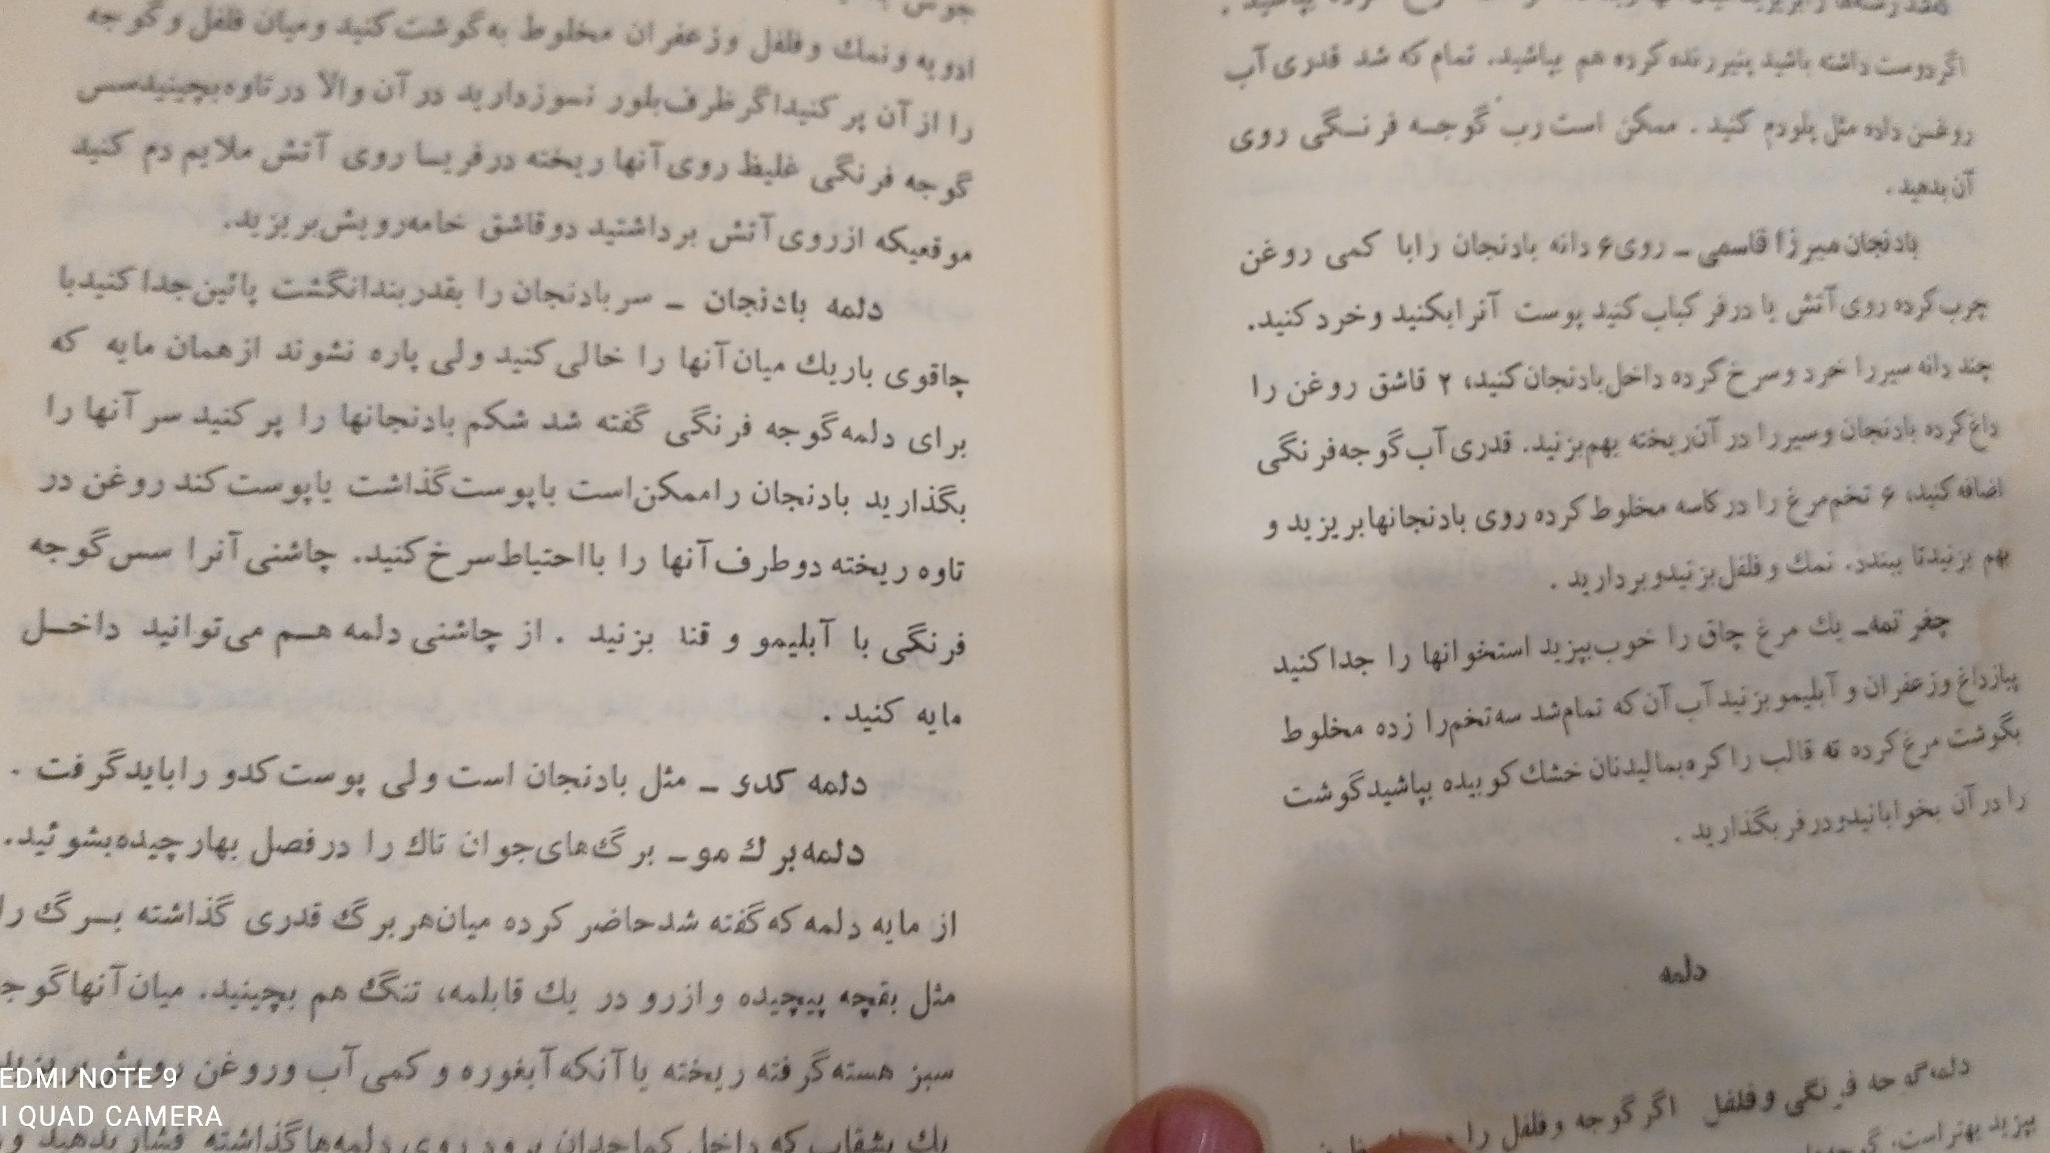 اگر دوست داشته باشید پنیر رنده کرده هم بپاشید. تمام که شد قدری آب
روغن داده مثل پلو دم کنید. ممکن است رب گوجه فرنگی روی
آن بدهید.
بادنجان میرزا قاسمی ـ روی ۶ دانه بادنجان را با کمی روغن
چرب کرده روی آتش یا در فر کباب کنید پوست آنرا بکنید و خرد کنید.
چند دانه سیر را خرد و سرخ کرده داخل بادنجان کنید، ۲ قاشق روغن را
داغ کرده بادنجان و سیر را در آن ریخته بهم بزنید. قدری آب گوجه فرنگی
اضافه کنید، ۶ تخم مرغ را در کاسه مخلوط کرده روی بادنجانها بریزید و
بهم بزنید تا ببندد. نمك و فلفل بزنید و بردارید.
چغرتمه ـ یك مرغ چاق را خوب بپزید استخوانها را جدا کنید
پیازداغ و زعفران و آبلیمو بزنید آب آن که تمام شد سه تخم را زده مخلوط
بگوشت مرغ کرده ته قالب را کره بمالید نان خشك کوبیده بپاشید گوشت
را در آن بخوابانید و در فر بگذارید.
دلمه
دلمه گوجه فرنگی و فلفل اگر گوجه و فلفل را
بپزید بهتر است.
ادویه و نمك و فلفل و زعفران مخلوط به گوشت کنید و میان فلفل و گوجه
را از آن پر کنید اگر ظرف بلور نسوز دارید در آن والا در تاوه بچینید سس
گوجه فرنگی غلیظ روی آنها ریخته در فر یا روی آتش ملایم دم کنید
موقعیکه از روی آتش برداشتید دو قاشق خامه رویش بریزید.
دلمه بادنجان ـ سر بادنجان را بقدر بند انگشت پائین جدا کنید با
چاقوی باریك میان آنها را خالی کنید ولی پاره نشوند از همان مایه که
برای دلمه گوجه فرنگی گفته شد شکم بادنجانها را پر کنید سر آنها را
بگذارید بادنجان را ممکن است با پوست گذاشت یا پوست کند روغن در
تاوه ریخته دو طرف آنها را با احتیاط سرخ کنید. چاشنی آنرا سس گوجه
فرنگی با آبلیمو و قند بزنید. از چاشنی دلمه هم می‌توانید داخل
مایه کنید.
دلمه کدو ـ مثل بادنجان است ولی پوست کدو را باید گرفت.
دلمه برك مو ـ برگ‌های جوان تاك را در فصل بهار چیده بشوئید.
از مایه دلمه که گفته شد حاضر کرده میان هر برگ قدری گذاشته برگ را
مثل بقچه پیچیده و از رو در یك قابلمه، تنگ هم بچینید. میان آنها گوجه
سبز هسته گرفته ریخته یا آنکه آبغوره و کمی آب و روغن رویش بریزید
یك بشقاب که داخل کماجدان برود روی دلمه‌ها گذاشته فشار بدهید و
REDMI NOTE 9
AI QUAD CAMERA